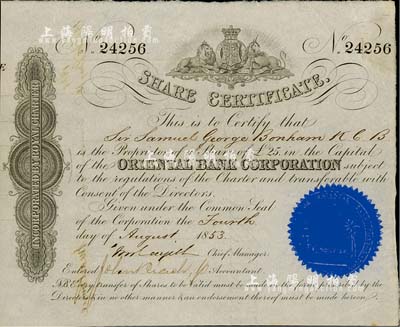 上海陽明拍賣
No. 24256
No. 24256
SHARE CERTIFICATE.
This is to Certify that
Sir Samuel George Bonham K C B
is the Proprietor of a Share of £25 in the Capital
of the ORIENTAL BANK CORPORATION, subject
to the regulations of the Charter and transferable with
Consent of the Directors.
Given under the Common Seal
of the Corporation the Fourth
day of August, 1853.
Chief Manager.
Entered Accountant.
N.B. Every transfer of Shares to be valid must be made in the form prescribed by the
Directors, in no other manner & an endorsement thereof must be made hereon.
INCORPORATED BY ROYAL CHARTER
上海陽明拍賣